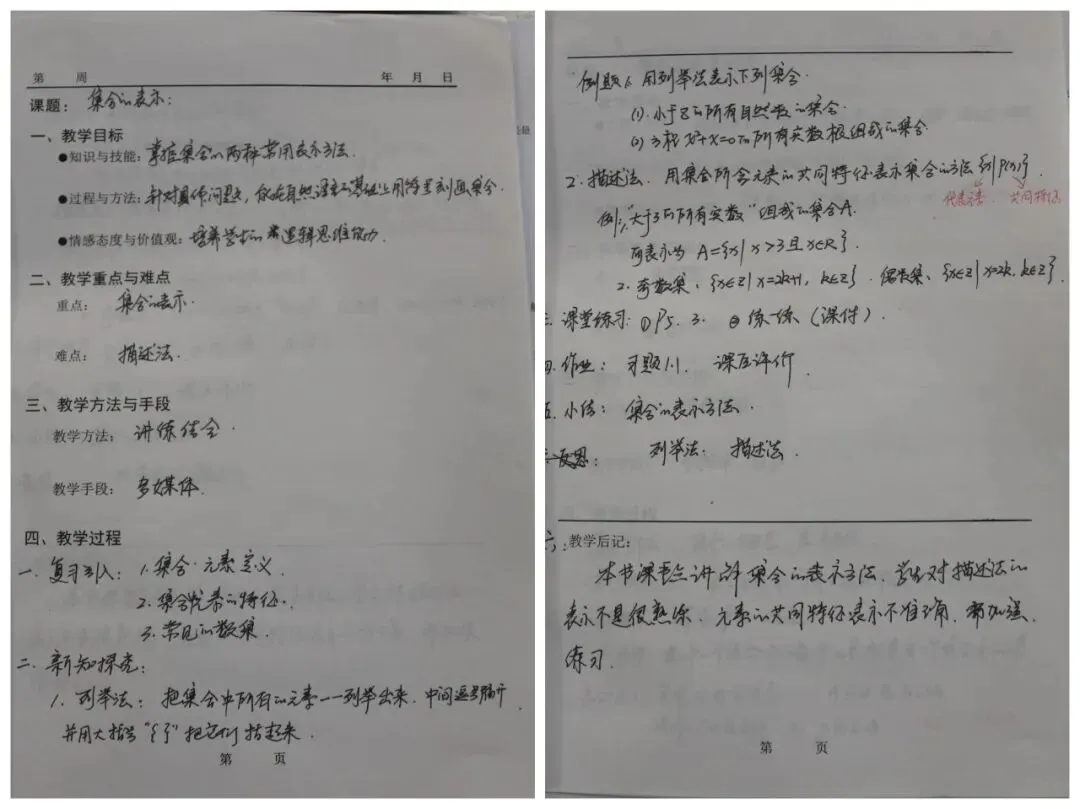 第 周 年 月 日
课题： 集合的表示：
一、教学目标
●知识与技能：掌握集合的两种常用表示方法.
●过程与方法：针对具体问题，能在自然语言基础上用符号刻画集合.
●情感态度与价值观：培养学生的逻辑思维能力.
二、教学重点与难点
重点： 集合的表示.
难点： 描述法.
三、教学方法与手段
教学方法： 讲练结合.
教学手段： 多媒体.
四、教学过程
一. 复习引入： 1. 集合·元素定义.
2. 集合元素的特征.
3. 常见的数集.
二. 新知探究：
1. 列举法： 把集合中所有的元素一一列举出来. 中间逗号隔开.
并用大括号“{ }”把它们括起来.
第 页
例题1. 用列举法表示下列集合.
(1). 小于8的所有自然数的集合.
(2) 方程x²+x=0的所有实数根组成的集合.
2. 描述法. 用集合所含元素的共同特征表示集合的方法{x|P(x)}
代表元素. 共同特征
例1. “大于3的所有实数”组成的集合A.
可表示为 A={x|x>3且x∈R}.
2. 奇数集. {x∈Z|x=2k+1, k∈Z}. 偶数集. {x∈Z|x=2k, k∈Z}.
三. 课堂练习. ①P5. 3. ②练一练（课件）.
四. 作业： 习题1.1. 课后评价
五. 小结： 集合的表示方法.
列举法. 描述法.
反思：
六. 教学后记：
本节课重点讲解集合的表示方法. 学生对描述法的
表示不是很熟练. 元素的共同特征表示不准确. 需加强
练习.
第 页